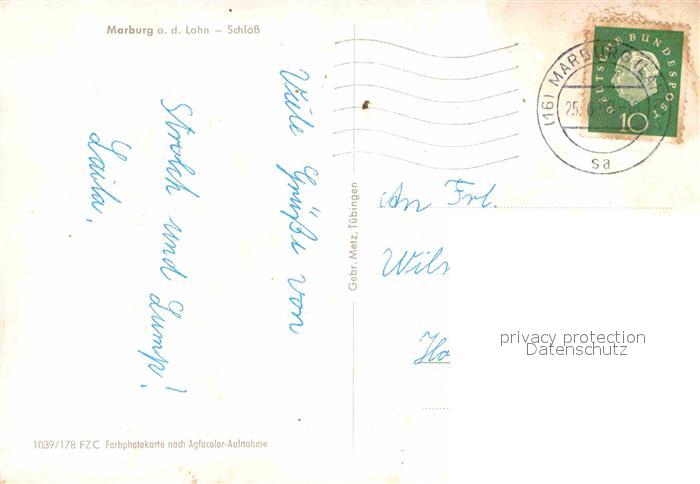 Marburg a. d. Lahn – Schloß
Viele Grüße von
Strolch und Lump!
Laila.
Gebr. Metz, Tübingen
DEUTSCHE BUNDESPOST
10
(16) MARBURG (LA
25.6
sa
An Frl.
Wil
Ha
privacy protection
Datenschutz
1039/178 FZC Farbphotokarte nach Agfacolor-Aufnahme